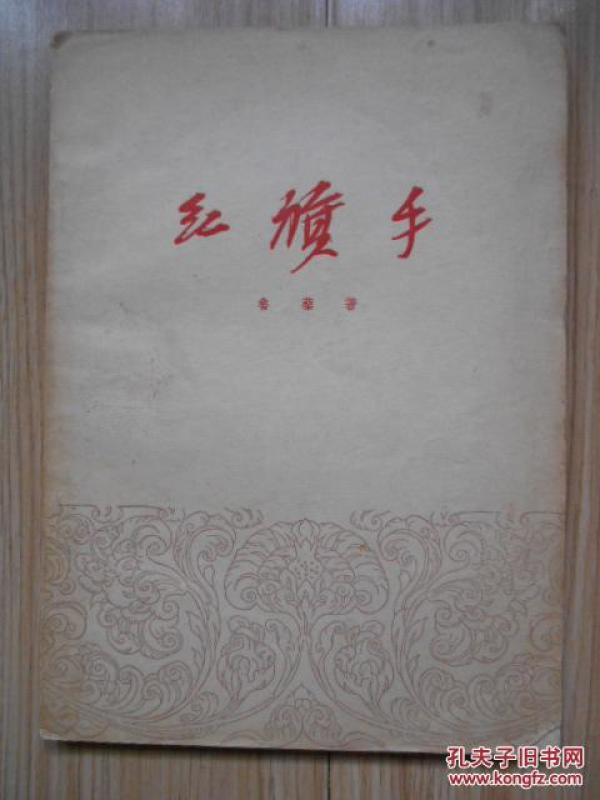 红旗手
鲁藜著
孔夫子旧书网
www.kongfz.com